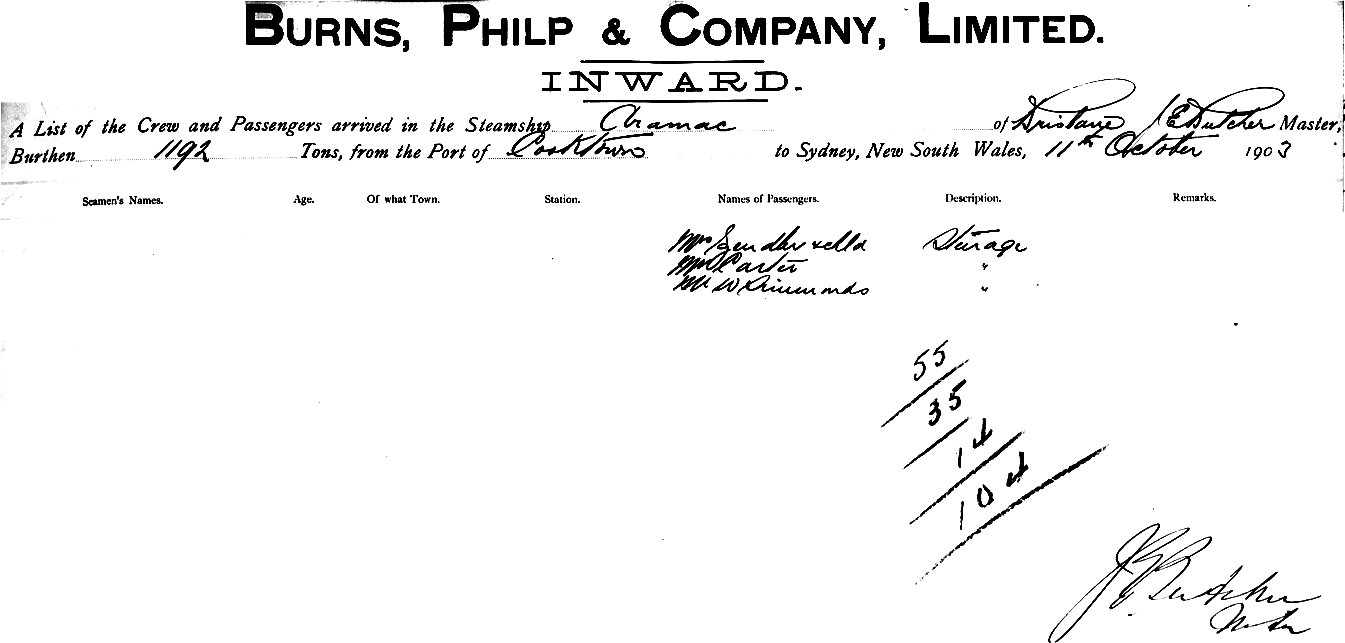 BURNS, PHILP & COMPANY, LIMITED.
INWARD.
A List of the Crew and Passengers arrived in the Steamship Aramac of Brisbane J E Butcher Master,
Burthen 1192 Tons, from the Port of Cooktown to Sydney, New South Wales, 11th October 1903
Seamen's Names. Age. Of what Town. Station. Names of Passengers. Description. Remarks.
Mrs & child Sturage
Mrs Carter "
Mr W "
55
35
14
104
J E Butcher